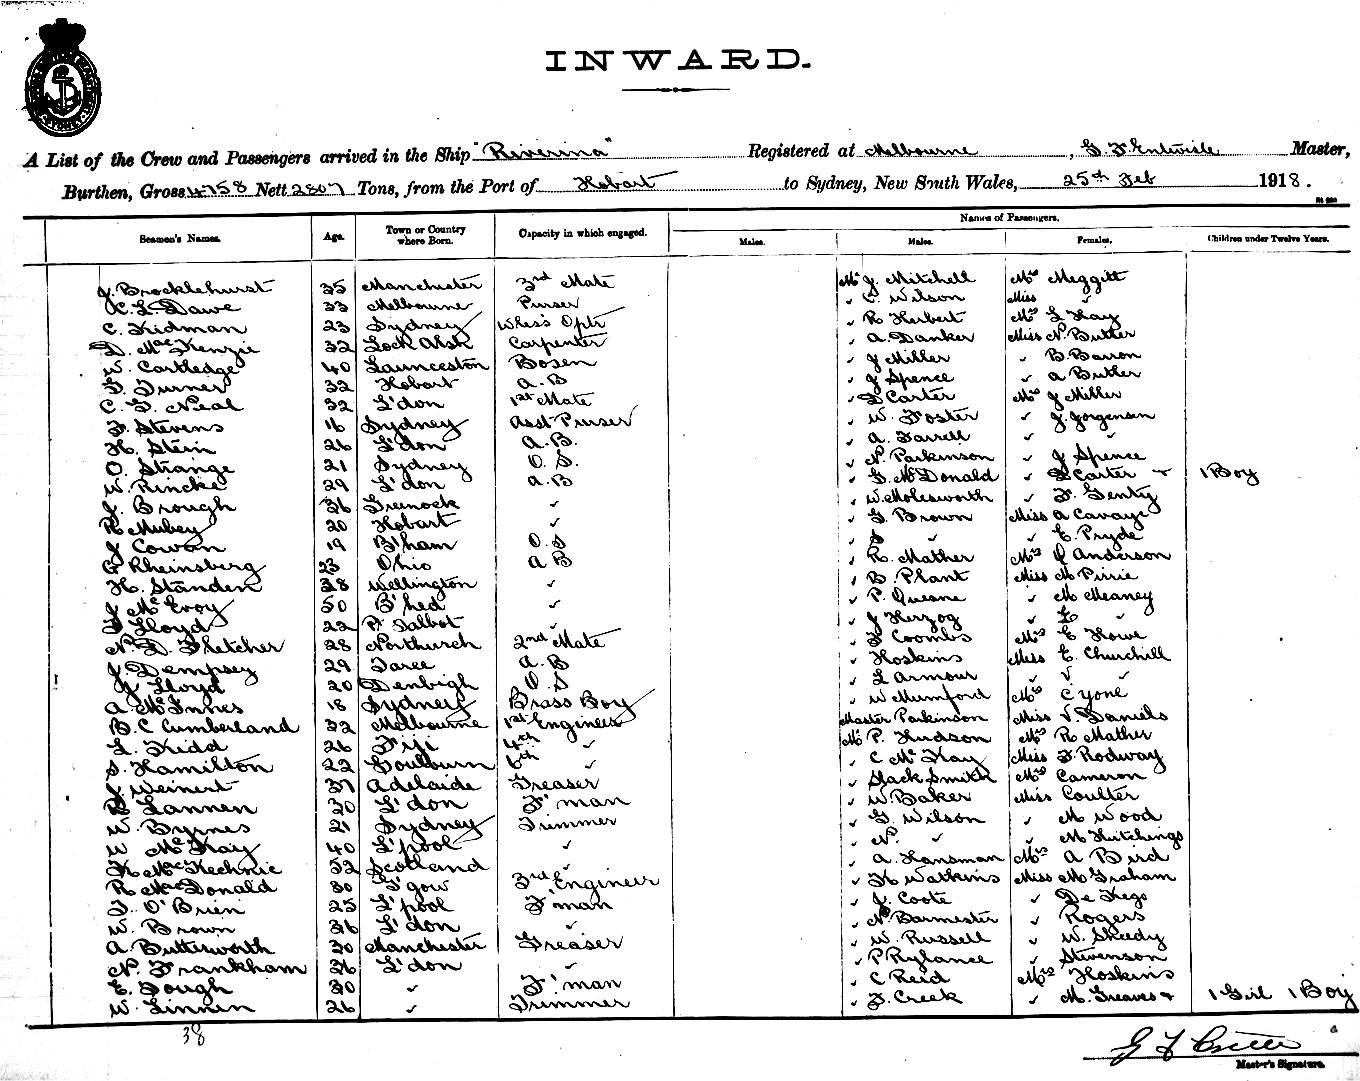 INWARD.
A List of the Crew and Passengers arrived in the Ship "Riverina" Registered at Melbourne, G. F. Entwisle Master,
Burthen, Gross 4758 Nett 2807 Tons, from the Port of Hobart to Sydney, New South Wales, 25th Feb 1918.
Names of Passengers.
Seamen's Names. Age. Town or Country where Born. Capacity in which engaged. Males. Males. Females. Children under Twelve Years.
J. Brocklehurst 35 Manchester 3rd Mate Mr J Mitchell Mrs Meggitt
C. L. Dawe 33 Melbourne Purser " C. Wilson Miss "
C. Kidman 23 Sydney Wireless Optr " R Herbert Mrs L Hay
D. McKenzie 32 Lock Alsh Carpenter " A. Danker Miss N. Butler
W. Cartledge 40 Launceston Bosen " J Miller " B. Barron
F. Turner 32 Hobart A.B " J Spence " A Butler
C. G. Neal 32 L'don 1st Mate " D Carter Mrs J Miller
F. Stevens 16 Sydney Asst Purser " W. Foster " J. Jorgensen
H. Stein 26 L'don A.B. " A. Farrell " "
O. Strange 21 Sydney O.S. " N. Parkinson " J Spence
W. Rincke 29 L'don A.B " G. McDonald " D Carter 1 Boy
J. Brough 36 Greenock " " W. Molesworth " F. Genty
R Mubey 20 Hobart " " G. Brown Miss A Cavaye
J Cowan 19 B'ham O.S " S " " E. Pryde
G Rheinsberg 23 Ohio A B " R. Mather Mrs J Anderson
H. Standen 38 Wellington " " B. Plant Miss M Pirrie
J McEvoy 50 B'hed " " P. Queane " M Meaney
Lloyd 22 Pt Talbot " " J Herzog " E "
N. D. Fletcher 28 Northurch 2nd Mate " F Coombs Mrs E Howe
J. Dempsey 29 Taree A.B " Hoskins Miss E. Churchill
J Lloyd 20 Denbigh O.S " L Armour " V. "
A McInnes 18 Sydney Brass Boy " W Mumford Mrs C Yone
B. C Cumberland 32 Melbourne 1st Engineer Master Parkinson Miss V. Daniels
L. Kidd 26 Fiji 4th " Mr P. Hudson Mrs R Mather
S. Hamilton 22 Goulburn 6th " " C McKay Miss F. Rodway
J. Weinert 37 Adelaide Greaser " Slack Smith Mrs Cameron
R Lannen 30 L'don F'man " W. Baker Miss Coulter
W. Byrnes 21 Sydney Trimmer " G. Wilson " M Wood
W McKay 40 L'pool " " N. " " M Hutchings
K MacKechnie 52 Scotland " " A. Hansman Mrs A Bird
R MacDonald 30 G'gow 3rd Engineer " H Watkins Miss M Graham
T. O'Brien 25 L'pool F'man " J. Coote " De Kegs
W. Brown 36 L'don " " N. Barmester " Rogers
A. Butterworth 30 Manchester Greaser " W. Russell " W. Skeedy
N. Frankham 36 L'don " " P Rylance " Stevenson
E. Gough 30 " F'man " C Reid Mrs Hoskins
W. Linnen 26 " Trimmer " F. Creek " M. Greaves + 1 Girl 1 Boy
38
Master's Signature.